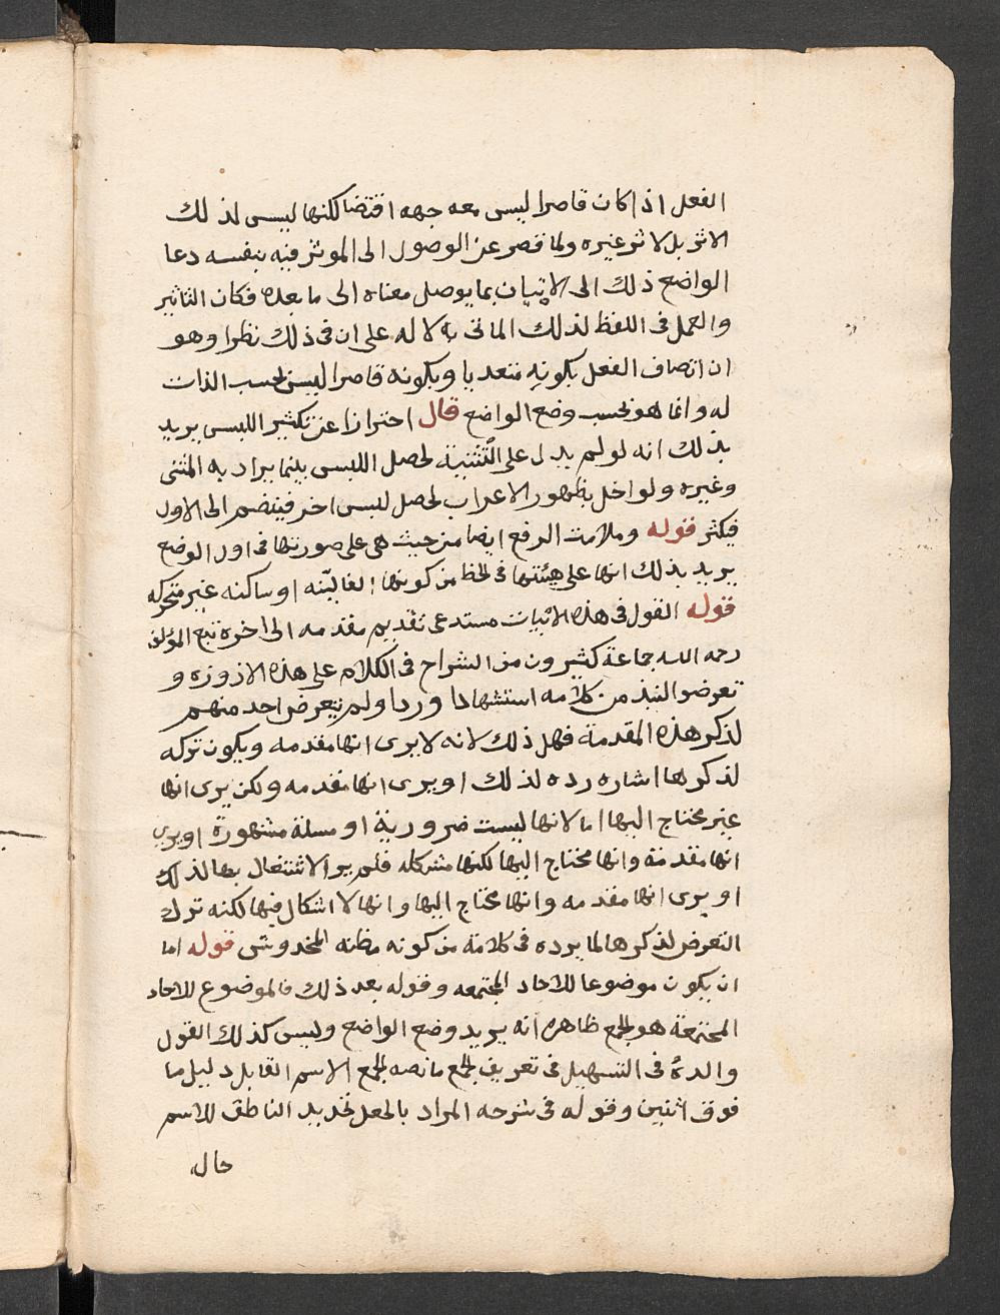 الفعل اذا كان قاصرا ليس معه جهه اقتضا لكنها ليس لذلك
الاثر بل لاثر غيره ولما قصر عن الوصول الى الموثر فيه بنفسه دعا
الواضع ذلك الى الاتيان بما يوصل معناه الى ما بعده فكان التاثير
والعمل فى اللفظ لذلك الماتى به لا له على ان فى ذلك نظرا وهو
ان اتصاف الفعل بكونه متعديا وبكونه قاصرا ليس بحسب الذات
له وانما هو بحسب وضع الواضع قال احترازا عن تكثير اللبس يريد
بذلك انه لو لم يدل على التثنية لحصل اللبس بينما يراد به المثنى
وغيره ولو اخل بظهور الاعراب لحصل لبس اخر فينضم الى الاول
فيكثر قوله وملامت الرفع ايضا من حيث هى على صورتها فى اول الوضع
يريد بذلك انها على هيئتها فى لحظ من كونها الفا لينه او ساكنه غير متحركه
قوله القول فى هذه الابيات مستدعى تقديم مقدمه الى اخره تبع المولف
رحمه الله جماعة كثيرون من الشراح فى الكلام على هذه الارجوزه و
تعرضوا لنبذ من كلامه استشهادا وردا ولم يتعرض احد منهم
لذكر هذه المقدمة فهل ذلك لانه لا يرى انها مقدمه ويكون تركه
لذكرها اشاره رده لذلك او يرى انها مقدمه ولكن يرى انها
غير محتاج اليها اما لانها ليست ضرورية او مسلة مشهورة او يرى
انها مقدمة وانها محتاج اليها لكنها مشكله فلم ير الاشتغال بها لذلك
او يرى انها مقدمه وانها محتاج اليها وانها لا اشكال فيها لكنه ترك
التعرض لذكرها لما يرده فى كلامة من كونه مظنه المخدوش قوله اما
ان يكون موضوعا للاحاد المجتمعه وقوله بعد ذلك فالموضوع للاحاد
المجتمعة هو الجمع ظاهره انه يريد وضع الواضع وليس كذلك القول
والده فى التسهيل فى تعريف الجمع ما نصه الجمع الاسم القابل دليل ما
فوق اثنين وقوله فى شرحه المراد بالجعل تجديد الناطق للاسم
حال